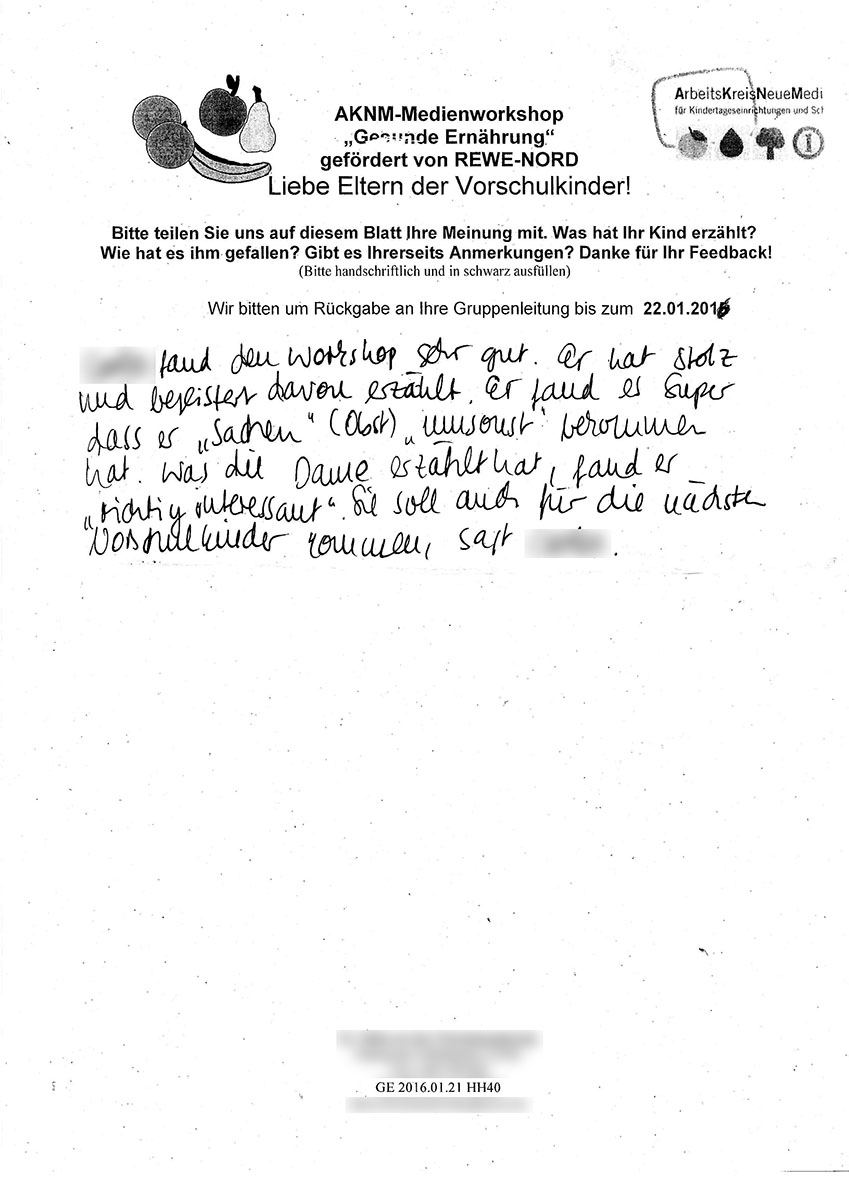 AKNM-Medienworkshop
„Gesunde Ernährung“
gefördert von REWE-NORD
Liebe Eltern der Vorschulkinder!
ArbeitsKreisNeueMedi
für Kindertageseinrichtungen und Sch
Bitte teilen Sie uns auf diesem Blatt Ihre Meinung mit. Was hat Ihr Kind erzählt?
Wie hat es ihm gefallen? Gibt es Ihrerseits Anmerkungen? Danke für Ihr Feedback!
(Bitte handschriftlich und in schwarz ausfüllen)
Wir bitten um Rückgabe an Ihre Gruppenleitung bis zum 22.01.2016
fand den Workshop sehr gut. Er hat stolz
und begeistert davon erzählt. Er fand es super
dass er „Sachen“ (Obst) „umsonst“ bekommen
hat. Was die Dame erzählt hat, fand er
„richtig interessant“. Sie soll auch für die nächsten
Vorschulkinder kommen, sagt .
GE 2016.01.21 HH40